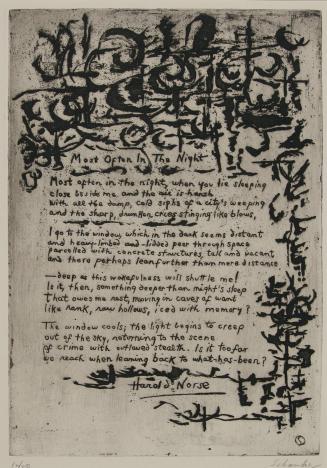 Most Often In The Night
Most often in the night, when you lie sleeping
close beside me and the air is harsh
with all the damp, cold sighs of a city's weeping
and the sharp, drunken cries stinging like blows,
I go to the window, which in the dark seems distant
and heavy-limbed and -lidded peer through space
parcelled with concrete structures, tall and vacant
and there perhaps lean further than mere distance
—deep as this wakefulness will shuttle me!
Is it, then, something deeper than night's sleep
that owes me rest, moving in caves of want
like rank, raw hollows, iced with memory?
The window cools; the light begins to creep
out of the sky, returning to the scene
of crime with outlawed stealth. Is it too far
we reach when leaning back to what-has-been?
Harold Norse